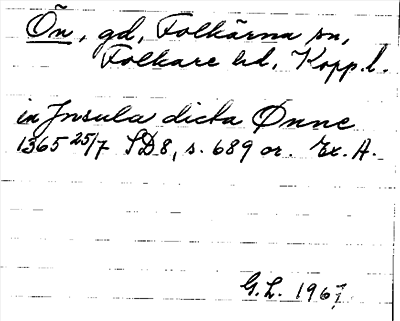 Ön, gd, Folkärna sn,
Folkare hd, Kopp. l.
in Jnsula dicta Ønne
1365 25/7 SD8, s. 689 or. Ex. A.
G.L. 1967